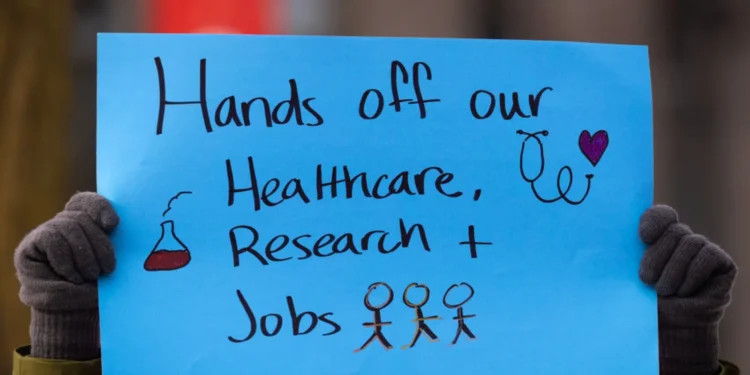 Hands off our
Healthcare,
Research +
Jobs